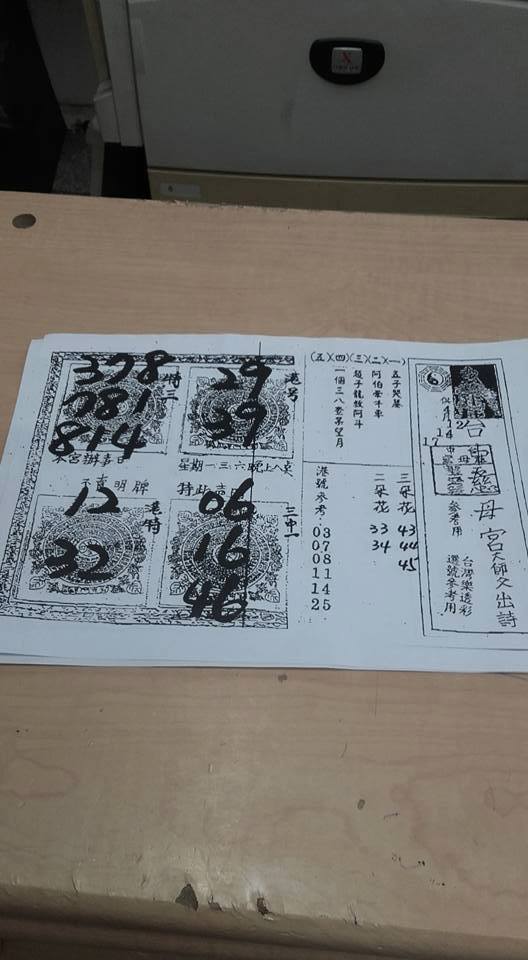 378
081
814
特三
29
39
港号
本宮辦事日
星期一三六晚上八点
12
32
港特
明牌
06
16
46
三中一
(五)(四)(三)(二)(一)
五子哭墓
阿伯牽牛車
一個三八在
望月
港號參考
03
07
08
11
14
25
三朵花
43
44
45
二朵花
33
34
6
12
14
17
台中
慈母宮天師父出詩
參考用
台灣樂透彩
選號參考用